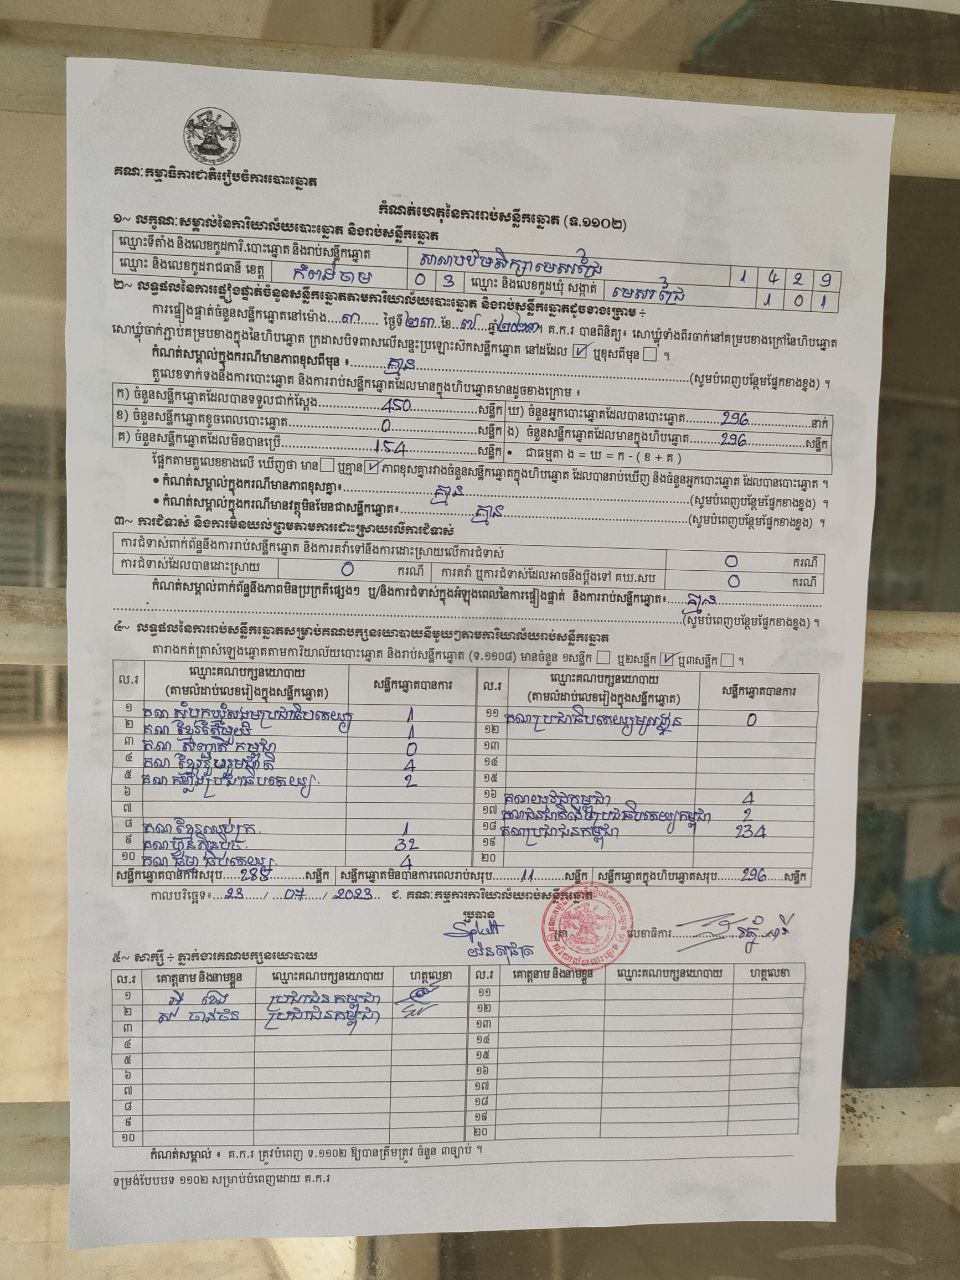 គណៈកម្មាធិការជាតិរៀបចំការបោះឆ្នោត
កំណត់ហេតុនៃការរាប់សន្លឹកឆ្នោត (ទ.១១០២)
១~ លក្ខណៈសម្គាល់នៃការិយាល័យបោះឆ្នោត និងរាប់សន្លឹកឆ្នោត
ឈ្មោះទីតាំង និងលេខកូដការិ.បោះឆ្នោត និងរាប់សន្លឹកឆ្នោត សាលាបឋមសិក្សាមេសរជ្រៃ 1 4 2 9
ឈ្មោះ និងលេខកូដរាជធានី ខេត្ត កំពង់ចាម 0 3 ឈ្មោះ និងលេខកូដឃុំ សង្កាត់ មេសរជ្រៃ 1 0 1
២~ លទ្ធផលនៃការផ្ទៀងផ្ទាត់ចំនួនសន្លឹកឆ្នោតតាមការិយាល័យបោះឆ្នោត និងរាប់សន្លឹកឆ្នោតដូចខាងក្រោម ÷
ការផ្ទៀងផ្ទាត់ចំនួនសន្លឹកឆ្នោតនៅម៉ោង...៣...... ថ្ងៃទី២៣.ខែ..៧...ឆ្នាំ២០២៣។ គ.ក.រ បានពិនិត្យ៖ សោឃ្លុំទាំងពីរចាក់នៅគម្របខាងក្រៅនៃហិបឆ្នោត
សោឃ្លុំចាក់ភ្ជាប់គម្របខាងក្នុងនៃហិបឆ្នោត ក្រដាសបិទពាសលើសន្ទះប្រឡោះស៊កសន្លឹកឆ្នោត នៅដដែល ☑ ឬខុសពីមុន ☐ ។
កំណត់សម្គាល់ក្នុងករណីមានភាពខុសពីមុន ៖........គ្មាន........(សូមបំពេញបន្ថែមផ្នែកខាងខ្នង) ។
តួលេខទាក់ទងនឹងការបោះឆ្នោត និងការរាប់សន្លឹកឆ្នោតដែលមានក្នុងហិបឆ្នោតមានដូចខាងក្រោម ៖
ក) ចំនួនសន្លឹកឆ្នោតដែលបានទទួលជាក់ស្តែង........450........សន្លឹក ឃ) ចំនួនអ្នកបោះឆ្នោតដែលបានបោះឆ្នោត........296........នាក់
ខ) ចំនួនសន្លឹកឆ្នោតខូចពេលបោះឆ្នោត........0........សន្លឹក ង) ចំនួនសន្លឹកឆ្នោតដែលមានក្នុងហិបឆ្នោត........296........សន្លឹក
គ) ចំនួនសន្លឹកឆ្នោតដែលមិនបានប្រើ........154........សន្លឹក • ជាធម្មតា ង = ឃ = ក - ( ខ + គ )
ផ្អែកតាមតួលេខខាងលើ ឃើញថា មាន ☐ ឬគ្មាន ☑ ភាពខុសគ្នារវាងចំនួនសន្លឹកឆ្នោតក្នុងហិបឆ្នោត ដែលបានរាប់ឃើញ និងចំនួនអ្នកបោះឆ្នោត ដែលបានបោះឆ្នោត ។
• កំណត់សម្គាល់ក្នុងករណីមានភាពខុសគ្នា៖........គ្មាន........(សូមបំពេញបន្ថែមផ្នែកខាងខ្នង) ។
• កំណត់សម្គាល់ក្នុងករណីមានវត្ថុមិនមែនជាសន្លឹកឆ្នោត៖........គ្មាន........(សូមបំពេញបន្ថែមផ្នែកខាងខ្នង) ។
៣~ ការជំទាស់ និងការមិនយល់ព្រមតាមការដោះស្រាយលើការជំទាស់
ការជំទាស់ពាក់ព័ន្ធនឹងការរាប់សន្លឹកឆ្នោត និងការតវ៉ាទៅនឹងការដោះស្រាយលើការជំទាស់ 0 ករណី
ការជំទាស់ដែលបានដោះស្រាយ 0 ករណី ការតវ៉ា ឬការជំទាស់ដែលអាចនឹងប្តឹងទៅ គឃ.សប 0 ករណី
កំណត់សម្គាល់ពាក់ព័ន្ធនឹងភាពមិនប្រក្រតីផ្សេងៗ ឬ/និងការជំទាស់ក្នុងអំឡុងពេលនៃការផ្ទៀងផ្ទាត់ និងការរាប់សន្លឹកឆ្នោត៖....គ្មាន........
........(សូមបំពេញបន្ថែមផ្នែកខាងខ្នង) ។
៤~ លទ្ធផលនៃការរាប់សន្លឹកឆ្នោតសម្រាប់គណបក្សនយោបាយនីមួយៗតាមការិយាល័យរាប់សន្លឹកឆ្នោត
តារាងកត់ត្រាសំឡេងឆ្នោតតាមការិយាល័យបោះឆ្នោត និងរាប់សន្លឹកឆ្នោត (ទ.១១០៨) មានចំនួន ១សន្លឹក ☐ ឬ២សន្លឹក ☑ ឬ៣សន្លឹក ☐ ។
ល.រ ឈ្មោះគណបក្សនយោបាយ (តាមលំដាប់លេខរៀងក្នុងសន្លឹកឆ្នោត) សន្លឹកឆ្នោតបានការ ល.រ ឈ្មោះគណបក្សនយោបាយ (តាមលំដាប់លេខរៀងក្នុងសន្លឹកឆ្នោត) សន្លឹកឆ្នោតបានការ
១ គណ សំបុកឃ្មុំសង្គមប្រជាធិបតេយ្យ 1 ១១ គណប្រជាធិបតេយ្យមូលដ្ឋាន 0
២ គណ ខ្មែរតែមួយ 1 ១២
៣ គណ សញ្ជាតិ កម្ពុជា 0 ១៣
៤ គណ ខ្មែររួបរួមជាតិ 4 ១៤
៥ គណ កម្លាំងប្រជាធិបតេយ្យ 2 ១៥
៦ ១៦ គណយុវជនកម្ពុជា 4
៧ ១៧ គណជនជាតិដើមប្រជាធិបតេយ្យកម្ពុជា 2
៨ គណ ខ្មែរឈប់ក្រ 1 ១៨ គណប្រជាជនកម្ពុជា 234
៩ គណ ហ៊្វុនស៊ិនប៉ិច 32 ១៩
១០ គណ ធម្មាធិបតេយ្យ 4 ២០
សន្លឹកឆ្នោតបានការសរុប....285........សន្លឹក សន្លឹកឆ្នោតមិនបានការពេលរាប់សរុប....11........សន្លឹក សន្លឹកឆ្នោតក្នុងហិបឆ្នោតសរុប....296....សន្លឹក
កាលបរិច្ឆេទ៖...23..../...07..../...2023.. ជ. គណៈកម្មការការិយាល័យរាប់សន្លឹកឆ្នោត
ប្រធាន
ត្រា លេខាធិការ
៥~ សាក្សី ÷ ភ្នាក់ងារគណបក្សនយោបាយ
ល.រ គោត្តនាម និងនាមខ្លួន ឈ្មោះគណបក្សនយោបាយ ហត្ថលេខា ល.រ គោត្តនាម និងនាមខ្លួន ឈ្មោះគណបក្សនយោបាយ ហត្ថលេខា
១ ប្រជាជនកម្ពុជា ១១
២ ប្រជាជនកម្ពុជា ១២
៣ ១៣
៤ ១៤
៥ ១៥
៦ ១៦
៧ ១៧
៨ ១៨
៩ ១៩
១០ ២០
កំណត់សម្គាល់ ៖ គ.ក.រ ត្រូវបំពេញ ទ.១១០២ ឱ្យបានត្រឹមត្រូវ ចំនួន ៣ច្បាប់ ។
ទម្រង់បែបបទ ១១០២ សម្រាប់បំពេញដោយ គ.ក.រ